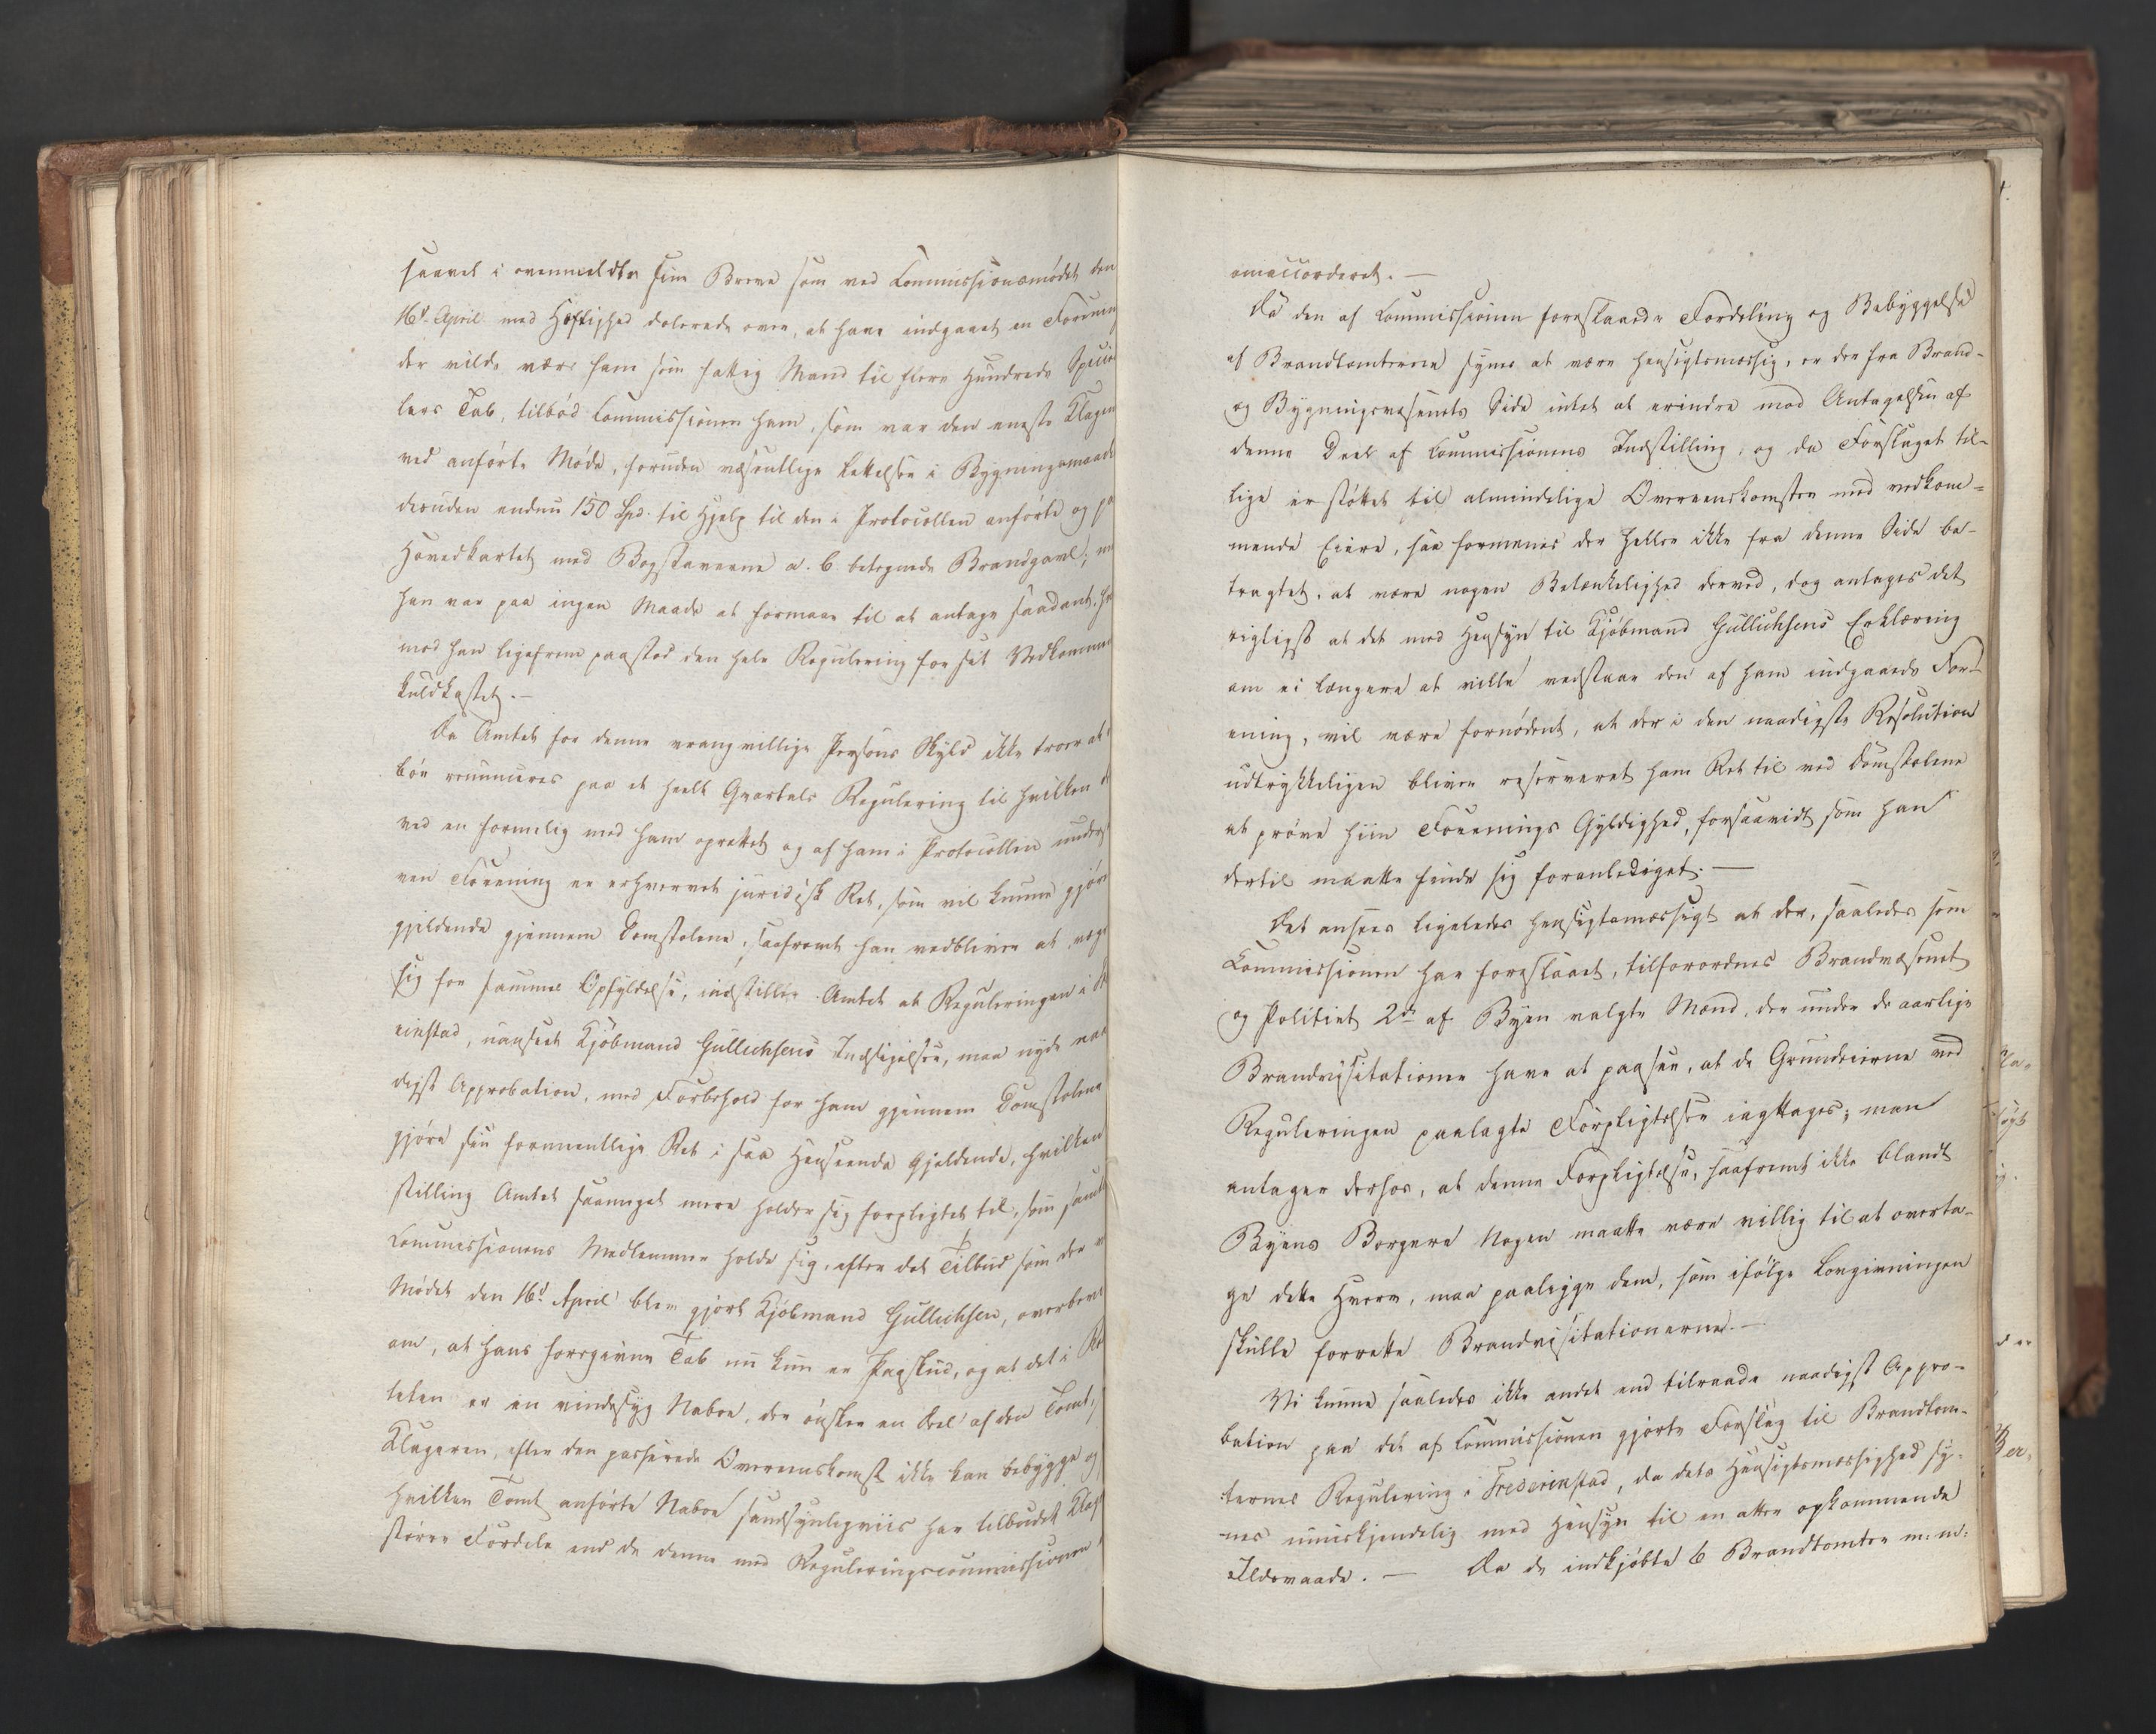 saavel i ovenmeldte sin Breve som ved Commissionsmødet den
16d April med Høflighed dolerede over, at have indgaaet en Forening
der vilde være ham som fattig Mand til flere Hundrede Specie
lers Tab, tilbød Commissionen ham, som var den eneste Klagen
ved anførte Møde, foruden væsentlige Lettelser i Bygningsmaade
desuden endnu 150 Spd. til Hjelp til den i Protocollen anførte og p
Hovedkartet med Bogstaverne a. b. betegnede Brandgavl; m
han var paa ingen Maade at formaae til at antage saadant, h
mod han ligefrem paastod den hele Regulering for sit Vedkommen
kuldkastet.—
Da Amtet for denne vrangvillige Persons Skyld ikke troer at
bør renunceres paa et heelt Qvartals Regulering til hvilken d
ved en formelig med ham oprettet og af ham i Protocollen unders
ven Forening er erhvervet juridisk Ret, som vil kunne gjøre
gjeldende gjennem Domstolene, saafremt han vedbliver at vægr
sig for sammes Opfyldelse, indstiller Amtet at Reguleringen i F
rikstad, uanseet Kjøbmand Gullichsens Indsigelser, maa nyde naa
digst Approbation, med Forbehold for ham gjennem Domstolene
gjøre sin formentlige Ret i saa Henseende gjeldende, hvilken
stilling Amtet saameget mere holder sig forpligtet til, som samt
Commissionens Medlemmer holde sig, efter det Tilbud som der v
Mødet den 16d April blev gjort Kjøbmand Gullichsen, overbevi
om, at hans foregivne Tab nu kun er Paaskud, og at det i Re
teten er en vindesyg Naboe, der ønsker en Deel af den Tomt, s
Klageren, efter den passerede Overeenskomst ikke kan bebygge og
hvilken Tomt anførte Naboe sandsynligviis har tilbudet Klag
større Fordele end de denne med Reguleringscommissionen
omaccorderet.—
Da den af Commissionen foreslaaede Fordeling og Bebyggelse
af Brandtomterne synes at være hensigtsmæssig, er der fra Brand-
og Bygningsvæsenets Side intet at erindre mod Antagelsen af
denne Deel af Commissionens Indstilling, og da Forslaget til-
lige er støttet til almindelige Overeenskomster med vedkom-
mende Eiere, saa formenes der heller ikke fra denne Side be-
tragtet, at være nogen Betænkelighed derved, dog antages det
rigtigst at det med Hensyn til Kjøbmand Gullichsens Erklæring
om ei længere at ville vedstaae den af ham indgaaede For-
ening, vil være fornødent, at der i den naadigste Resolution
udtrykkeligen bliver reserveret ham Ret til ved Domstolene
at prøve hiin Forenings Gyldighed, forsaavidt som han
dertil maatte finde sig foranlediget.—
Det ansees ligeledes hensigtsmæssigt at der, saaledes som
Commissionen har foreslaaet, tilforordnes Brandvæsenet
og Politiet 2de af Byen valgte Mænd, der under de aarlige
Brandvisitationer have at paasee, at de Grundeierne ved
Reguleringen paalagte Forpligtelser iagttages; man
antager derhos, at denne Forpligtelse, saafremt ikke blandt
Byens Borgere Nogen maatte være villig til at overta-
ge dette Hverv, maa paaligge dem, som ifølge Lovgivningen
skulle forrette Brandvisitationerne.—
Vi kunne saaledes ikke andet end tilraade naadigst Appro-
bation paa det af Commissionen gjorte Forslag til Brandtom-
ternes Regulering i Frederikstad, da dets Hensigtsmæssighed sy-
nes umiskjendelig med Hensyn til en atter opkommende
Ildsvaade.— Da de indkjøbte 6 Brandtomter m: m: